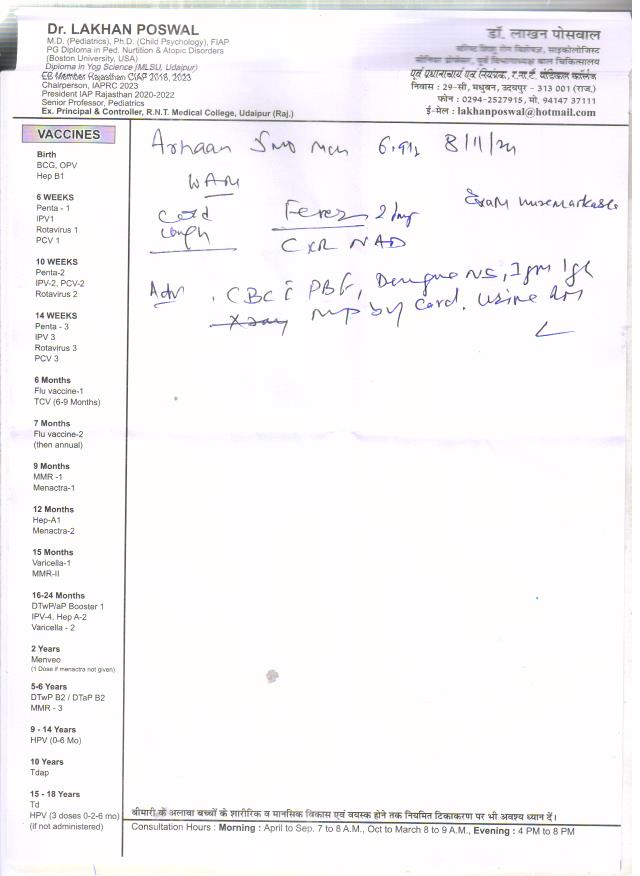 Dr. LAKHAN POSWAL
M.D. (Pediatrics), Ph.D. (Child Psychology), FIAP
PG Diploma in Ped. Nurtition & Atopic Disorders
(Boston University, USA)
Diploma in Yog Science (MLSU, Udaipur)
EB Member Rajasthan CIAP 2018, 2023
Chairperson, IAPRC 2023
President IAP Rajasthan 2020-2022
Senior Professor, Pediatrics
Ex. Principal & Controller, R.N.T. Medical College, Udaipur (Raj.)
डॉ. लाखन पोसवाल
वरिष्ठ शिशु रोग विशेषज्ञ, साइकोलोजिस्ट
सीनियर प्रोफेसर, पूर्व विभागाध्यक्ष बाल चिकित्सालय
पूर्व प्रधानाचार्य एवं नियंत्रक, र.ना.टै. मेडिकल कॉलेज
निवास : 29-सी, मधुबन, उदयपुर - 313 001 (राज.)
फोन : 0294-2527915, मो. 94147 37111
ई-मेल : lakhanposwal@hotmail.com
VACCINES
Birth
BCG, OPV
Hep B1
6 WEEKS
Penta - 1
IPV1
Rotavirus 1
PCV 1
10 WEEKS
Penta-2
IPV-2, PCV-2
Rotavirus 2
14 WEEKS
Penta - 3
IPV 3
Rotavirus 3
PCV 3
6 Months
Flu vaccine-1
TCV (6-9 Months)
7 Months
Flu vaccine-2
(then annual)
9 Months
MMR -1
Menactra-1
12 Months
Hep-A1
Menactra-2
15 Months
Varicella-1
MMR-II
16-24 Months
DTwP/aP Booster 1
IPV-4, Hep A-2
Varicella - 2
2 Years
Menveo
(1 Dose if menactra not given)
5-6 Years
DTwP B2 / DTaP B2
MMR - 3
9 - 14 Years
HPV (0-6 Mo)
10 Years
Tdap
15 - 18 Years
Td
HPV (3 doses 0-2-6 mo)
(if not administered)
Arhaan 8/11/21
Cold Fever 2 day Exam unremarkable
Cough CXR NAD
Adv . CBC c̄ PBF, Dengue NS, Igm Igg
Xray MP by Card. Urine
बीमारी के अलावा बच्चों के शारीरिक व मानसिक विकास एवं वयस्क होने तक नियमित टिकाकरण पर भी अवश्य ध्यान दें।
Consultation Hours : Morning : April to Sep. 7 to 8 A.M., Oct to March 8 to 9 A.M., Evening : 4 PM to 8 PM